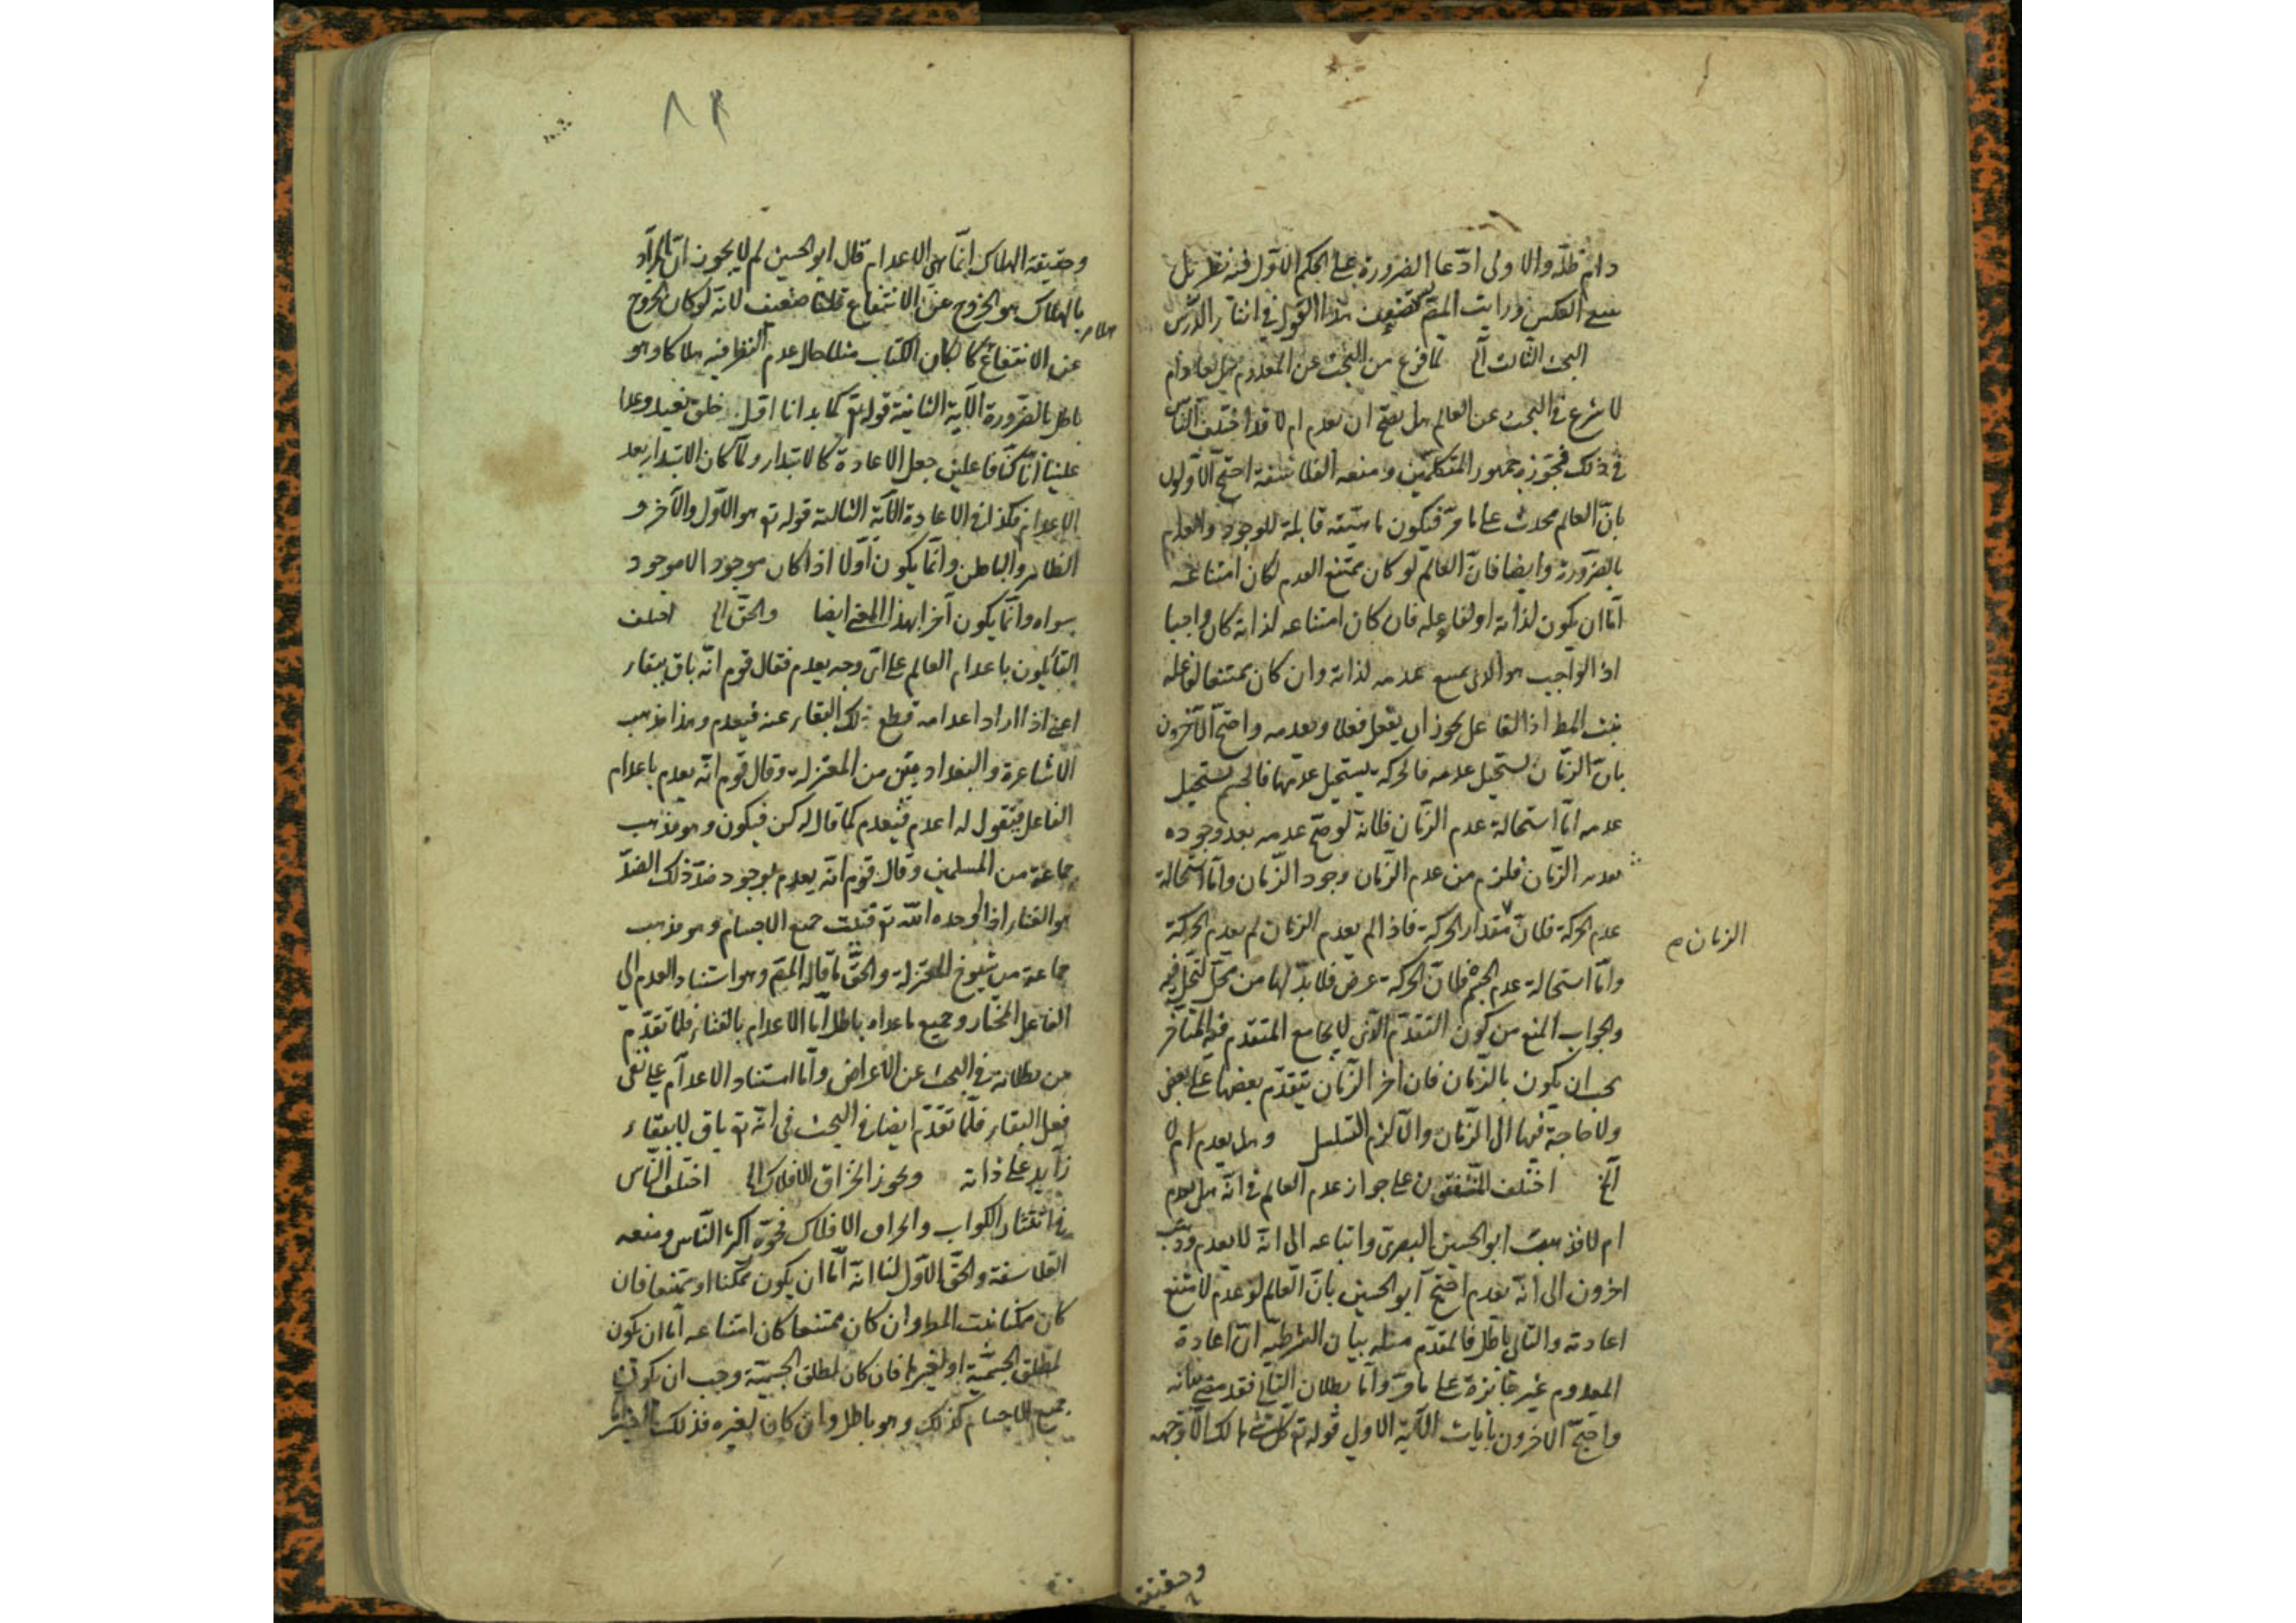 دام ظله والاولى ادعا الضرورة على الحكم الاول فيه نظر بل
العكس ورايت المص هذا القول فى اثنا الدرس
البحث الثالث الخ لما فرغ من البحث عن المعدوم
شرع فى البحث عن العالم هل يصح ان يعدم ام لا قد اختلف الناس
فى ذلك فجوزه جمهور المتكلمين ومنعه الفلاسفة احتج الاولون
بان العالم محدث على ما مر فيكون ماهيته قابلة للوجود والعدم
بالضرورة وايضا فان العالم لو كان ممتنع العدم لكان امتناعه
اما ان يكون لذاته او لفاعله فان كان امتناعه لذاته كان واجبا
اذ الواجب هو الذى يمتنع عدمه لذاته وان كان ممتنعا لفاعله
ثبت المط اذ الفاعل يجوز ان يفعل فعلا ويعدمه واحتج الآخرون
بان الزمان يستحيل عدمه فالحركة يستحيل عدمها فالجسم يستحيل
عدمه اما استحالة عدم الزمان فلانه لو صح عدمه بعد وجوده
بعديه الزمان فلزم من عدم الزمان وجود الزمان واما استحالة
عدم الحركة فلان مقدار الحركة فاذا لم يعدم الزمان لم يعدم الحركة
الزمان م
واما استحالة عدم الجسم فلان الحركة عرض فلا بد لها من محل تحل فيه
والجواب المنع من كون التقدم الذى لا يجامع المتقدم فيه المتاخر
يجب ان يكون بالزمان فان اجزا الزمان يتقدم بعضها على بعض
ولا حاجة فيها الى الزمان والا لزم التسلسل وهل يعدم ام لا
الخ اختلف المتفقون على جواز عدم العالم فى انه هل يعدم
ام لا فذهب ابو الحسين البصرى واتباعه الى انه لا يعدم وذهب
اخرون الى انه يعدم احتج ابو الحسين بان العالم لو عدم لامتنع
اعادته والتالى باطل فالمقدم مثله بيان الشرطيه ان اعادة
المعدوم غير جائزة على ما مر واما بطلان التالى فقد مضى بيانه
واحتج الاخرون بايات الآية الاولى قوله تع كل شئ هالك الا وجهه
وحقيقة
٨٢
وحقيقة الهلاك انما هى الاعدام قال ابو الحسين لم لا يجوز ان المراد
بالهلاك هو الخروج عن الانتفاع قلنا ضعيف لانه لو كان الخروج
عن الانتفاع هلاكا لكان الكتاب مثلا حال عدم النظر فيه هلاكا وهو
باطل بالضرورة الآية الثانية قوله تع كما بدانا اول خلق نعيده وعدا
علينا انا كنا فاعلين جعل الاعادة كالابتداء ولما كان الابتداء بعد
الاعدام فكذا فى الاعادة الآية الثالثة قوله تع هو الاول والآخر و
الظاهر والباطن وانما يكون اولا اذا كان موجودا لا موجود
سواه وانما يكون آخرا بهذا المعنى ايضا والحق الخ اختلف
القائلون باعدام العالم على اى وجه يعدم فقال قوم انه باق ببقاء
اعنى اذا اراد اعدامه قطع ذلك البقاء عنه فيعدم وهذا مذهب
الاشاعرة والبغداديين من المعتزلة وقال قوم انه يعدم باعدام
الفاعل فيقول له اعدم فيعدم كما قال له كن فيكون وهو مذهب
جماعة من المسلمين وقال قوم انه يعدم بوجود ضد ذلك الضد
هو الفناء اذا اوجده الله تع فنيت جميع الاجسام وهو مذهب
جماعة من شيوخ المعتزلة والحق ما قاله المص وهو استناد العدم الى
الفاعل المختار وجميع ما عداه باطل اما الاعدام بالفناء فلما تقدم
من بطلانه فى البحث عن الاعراض واما استناد الاعدام على نفى
فعل البقاء فلما تقدم ايضا فى البحث فى انه تع باق لا ببقاء
زايد على ذاته ويجوز انخراق الافلاك الخ اختلف الناس
فى انتثار الكواكب وانخراق الافلاك فجوزه اكثر الناس ومنعه
الفلاسفة والحق الاول لنا انه اما ان يكون ممكنا او ممتنعا فان
كان ممكنا ثبت المط وان كان ممتنعا كان امتناعه اما ان يكون
لمطلق الجسمية او لغيرها فان كان لمطلق الجسمية وجب ان يكون
جميع الاجسام كذلك وهو باطل وان كان لغيره فذلك الغير